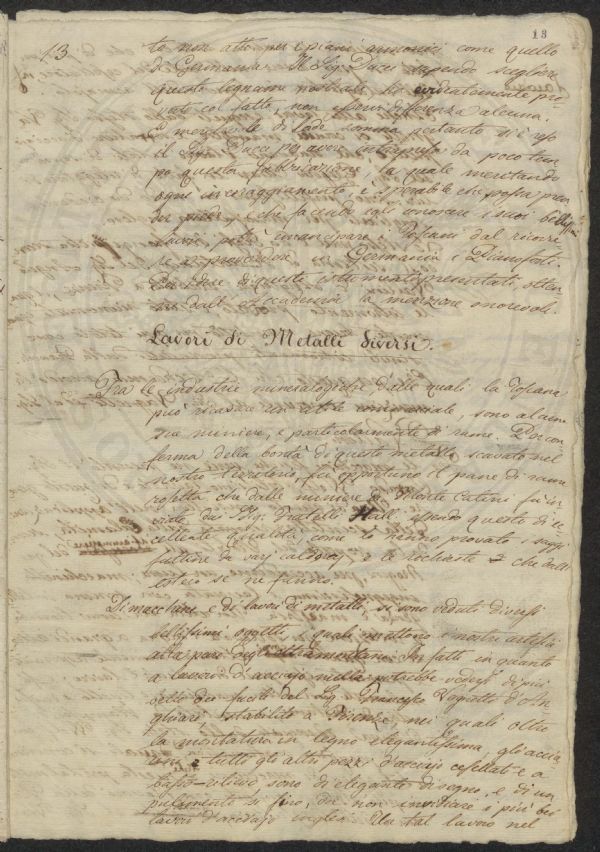 13
13.
to non atto per i piani armonici come quello
di Germania. Il Sig. Ducci sapendo scegliere
questo legname nostrale ha evidentemente pro-
vato col fatto, non esservi differenza alcuna.
E meritevole di lode somma pertanto si è reso
il Sig. Ducci per avere intrapresa da poco tem
po questa fabbricazione, la quale meritando
ogni incoraggiamento è sperabile che possa pren
der piede, e che facendo egli conoscere i suoi bellissimi
lavori potrà emancipare i Toscani dal ricorre
re a provvedersi in Germania i Pianoforti.
Per due di questi istrumenti presentati, otten
ne dall' Accademia la menzione onorevole.
Lavori di Metalli diversi.
Tra le industrie mineralogiche, dalle quali la Toscana
può ricavare un utile commerciale, sono alcune
sue miniere, e particolarmente di rame. Per con
ferma della bontà di questo metallo scavato nel
nostro territorio, fu opportuno il pane di rame
rosetta che dalle miniere di Monte Catini fu in
viato dai Sig. Fratelli Hall, essendo questo di ec
cellente qualità, come lo hanno provato i saggi
fattine da varj calderaj, e le richieste che dall'
estero se ne fanno.
Di macchine, e di lavori di metallo, si sono veduti diversi
bellissimi oggetti, i quali mettono i nostri artisti
alla pari degli oltramontani. Infatti in quanto
a lavori d'acciajo nulla potrebbe vedersi di più
bello dei fucili del Sig. Francesco d'An
ghiari stabilito a Firenze, nei quali oltre
la montatura in legno elegantissima, gli accia
rini e tutti gli altri pezzi d'acciajo cesellati e a
basso-rilievo sono di elegante disegno, e di un
pulimento sì fino, da non invidiare i più bei
lavori d'acciajo inglesi. Un tal lavoro nel